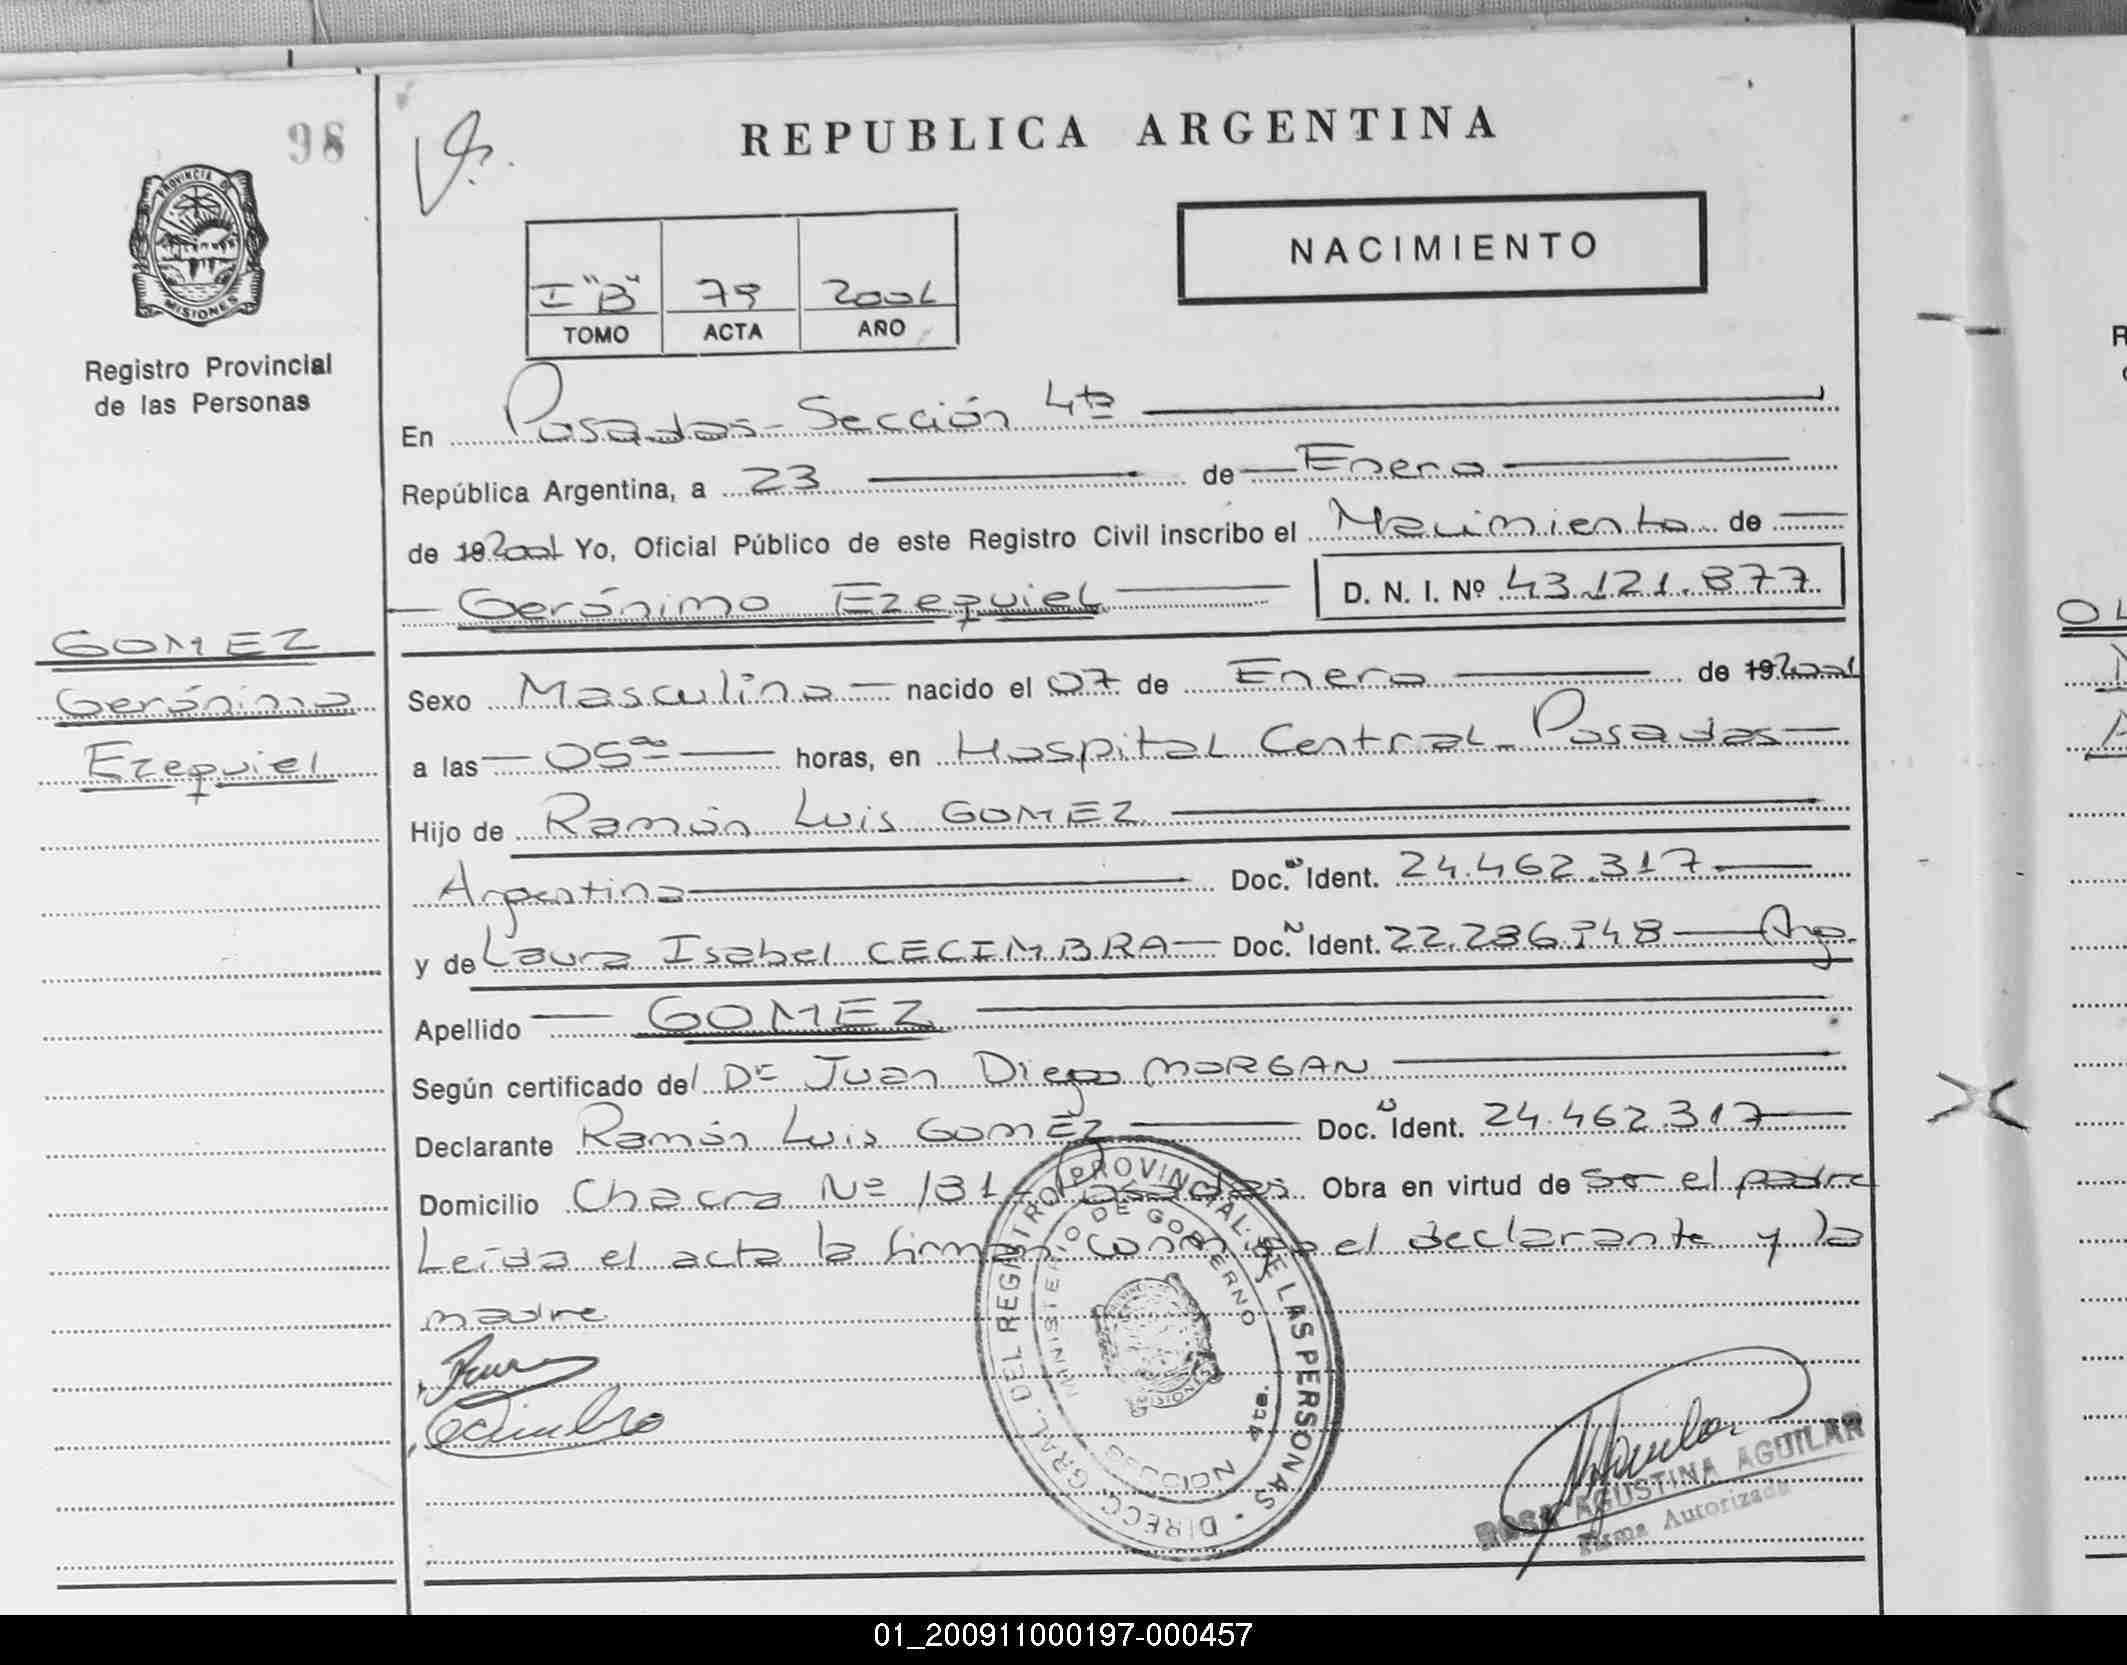 98
PROVINCIA DE
MISIONES
Registro Provincial
de las Personas
GOMEZ
Gerónimo
Ezequiel
REPUBLICA ARGENTINA
NACIMIENTO
I "B" 79 2001
TOMO ACTA AÑO
En Posadas - Sección 4ta
República Argentina, a 23 de Enero
de 19 2001 Yo, Oficial Público de este Registro Civil inscribo el Nacimiento de
Gerónimo Ezequiel D. N. I. Nº 43.121.877
Sexo Masculino nacido el 07 de Enero de 19 2001
a las 05oo horas, en Hospital Central - Posadas
Hijo de Ramón Luis GOMEZ
Argentino Doc. N Ident. 24.462.317
y de Laura Isabel CECIMBRA Doc. N Ident. 22.286.948 Arg.
Apellido GOMEZ
Según certificado del Dr Juan Diego MORGAN
Declarante Ramón Luis GOMEZ Doc. N Ident. 24.462.317
Domicilio Chacra Nº 181 - Posadas Obra en virtud de ser el padre
Leída el acta la firman conmigo el declarante y la
madre.
DIRECC. GRAL. DEL REGISTRO PROVINCIAL DE LAS PERSONAS
MINISTERIO DE GOBIERNO
MISIONES
SECCION 4ta.
ROSA AGUSTINA AGUILAR
Firma Autorizada
01_200911000197-000457